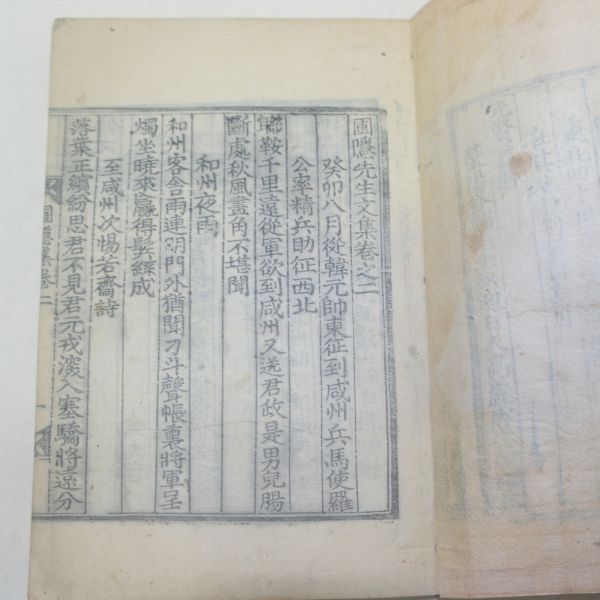 圃隱先生文集卷之二
癸卯八月從韓元帥東征到咸州兵馬使羅
公率精兵助征西北
聯鞍千里遠從軍欲到咸州又送君政是男兒腸
斷處秋風畫角不堪聞
和州夜雨
和州客舍雨連明門外猶聞刁斗聲帳裏將軍呈
燭坐曉來贏得鬂絲成
至咸州次惕若齋詩
落葉正繽紛思君不見君元戎深入塞驕將遠分
圃隱集卷二